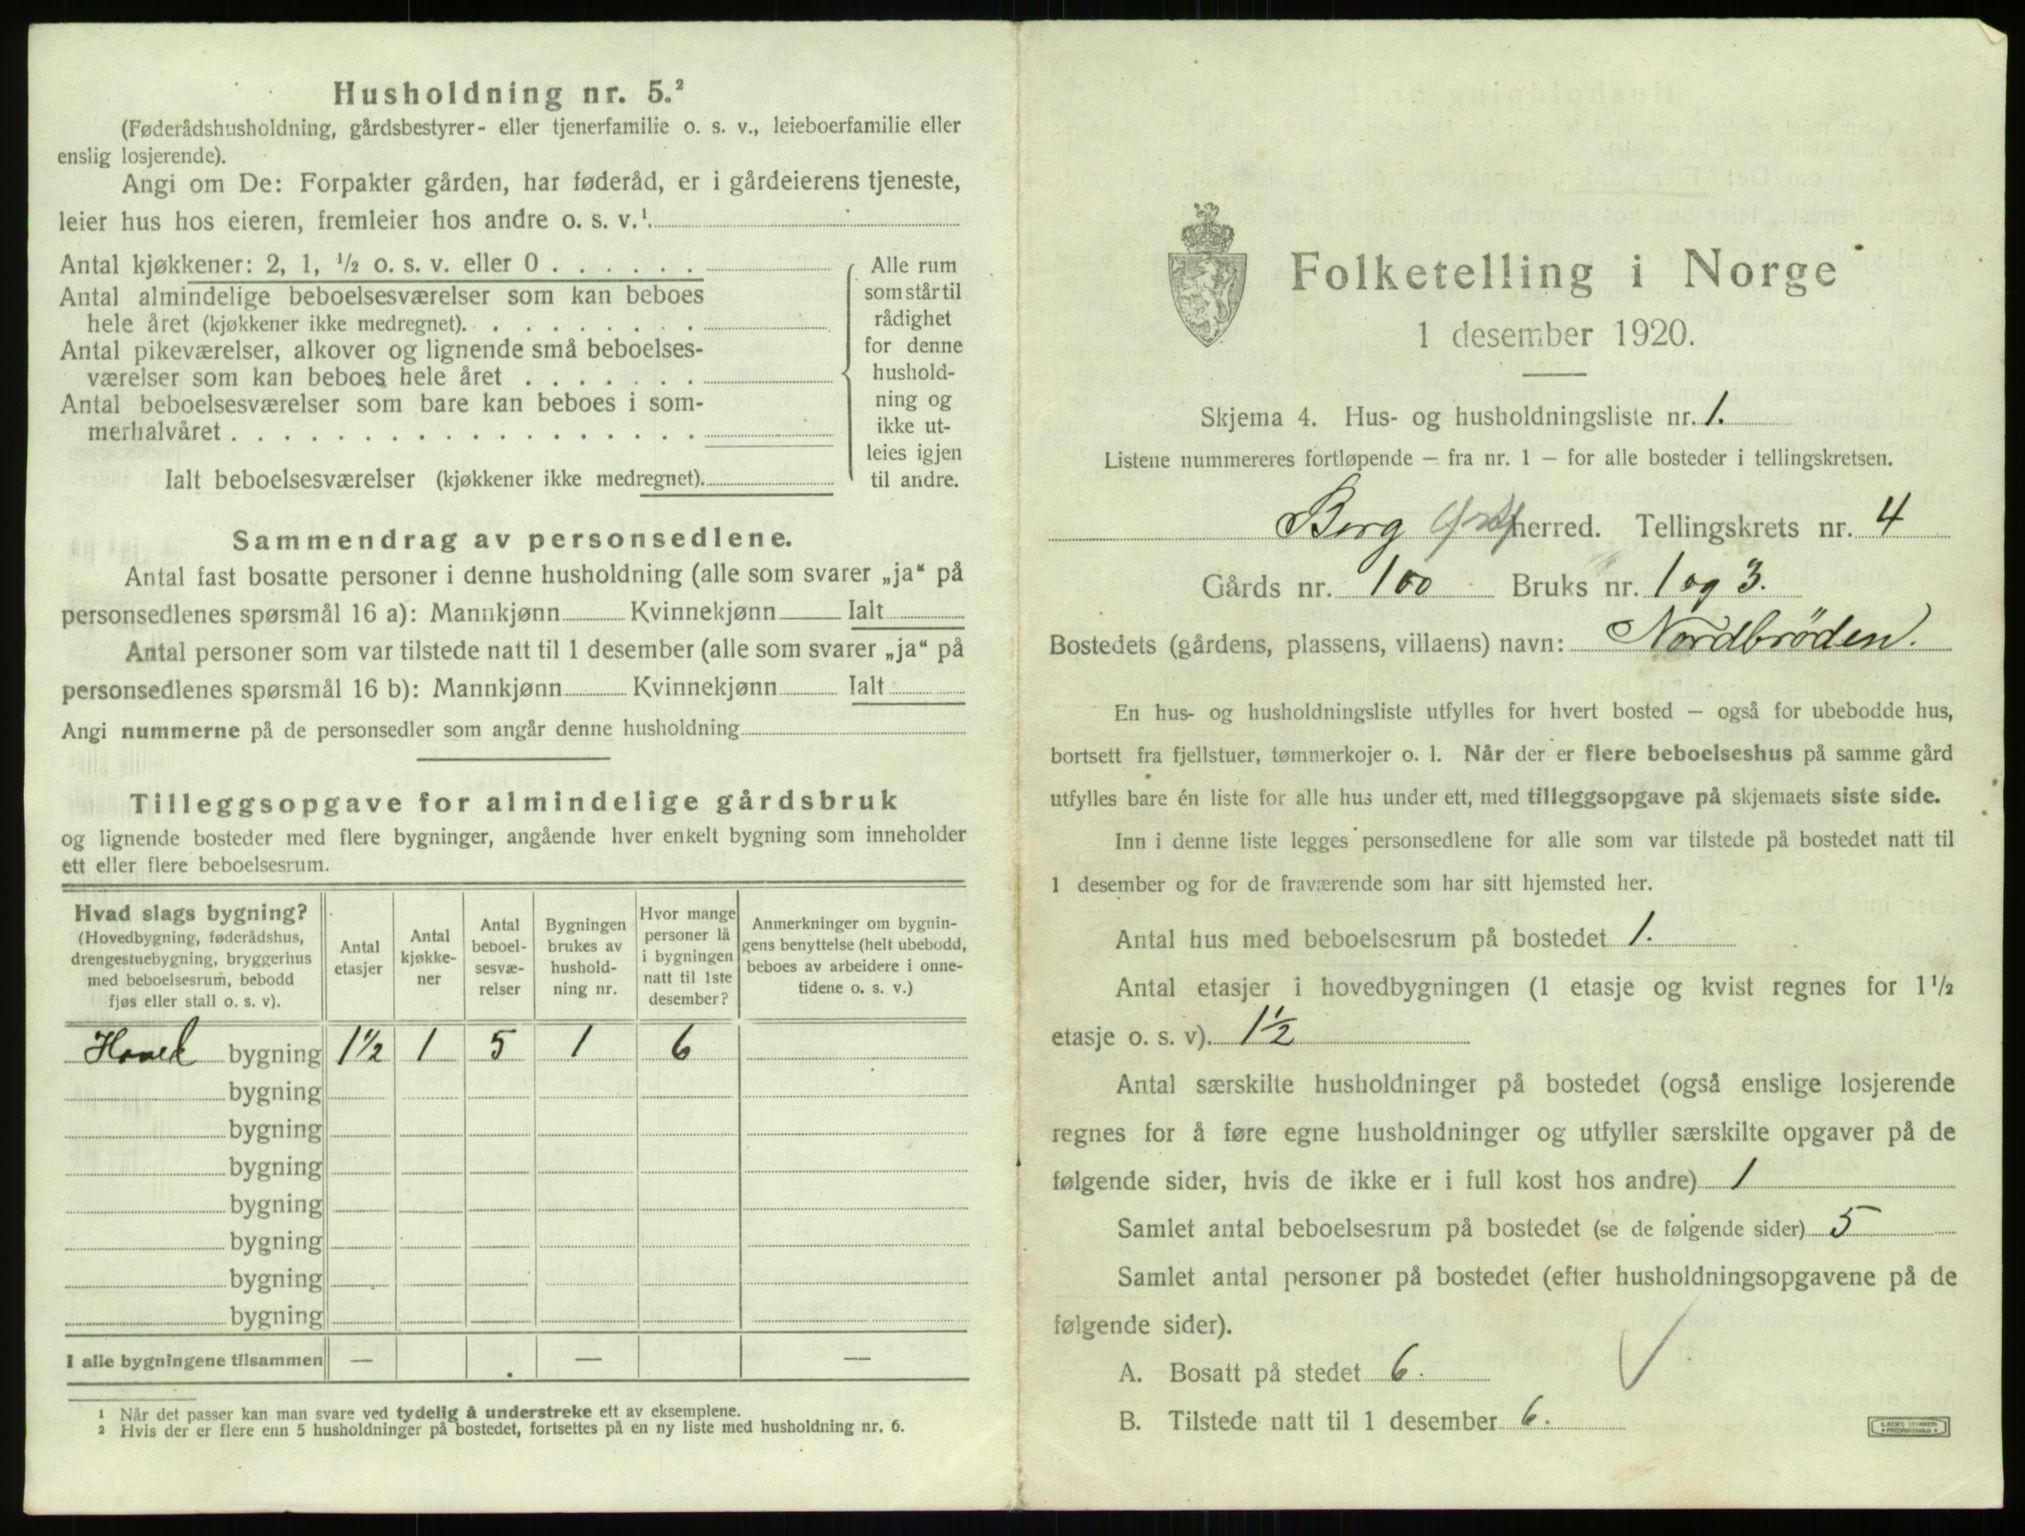 Husholdning nr. 5.²
(Føderådshusholdning, gårdsbestyrer- eller tjenerfamilie o. s. v., leieboerfamilie eller
enslig losjerende).
Angi om De: Forpakter gården, har føderåd, er i gårdeierens tjeneste,
leier hus hos eieren, fremleier hos andre o. s. v.¹
Antal kjøkkener: 2, 1, ½ o. s. v. eller 0
Antal almindelige beboelsesværelser som kan beboes
hele året (kjøkkener ikke medregnet)
Antal pikeværelser, alkover og lignende små beboelses-
værelser som kan beboes hele året
Antal beboelsesværelser som bare kan beboes i som-
merhalvåret
Ialt beboelsesværelser (kjøkkener ikke medregnet)
Alle rum
som står til
rådighet
for denne
hushold-
ning og
ikke ut-
leies igjen
til andre.
Sammendrag av personsedlene.
Antal fast bosatte personer i denne husholdning (alle som svarer „ja“ på
personsedlenes spørsmål 16 a): Mannkjønn Kvinnekjønn Ialt
Antal personer som var tilstede natt til 1 desember (alle som svarer „ja“ på
personsedlenes spørsmål 16 b): Mannkjønn Kvinnekjønn Ialt
Angi nummerne på de personsedler som angår denne husholdning
Tilleggsopgave for almindelige gårdsbruk
og lignende bosteder med flere bygninger, angående hver enkelt bygning som inneholder
ett eller flere beboelsesrum.
Hvad slags bygning?
(Hovedbygning, føderådshus,
drengestuebygning, bryggerhus
med beboelsesrum, bebodd
fjøs eller stall o. s. v).
Antal
etasjer
Antal
kjøkke-
ner
Antal
beboel-
sesvæ-
relser
Bygningen
brukes av
hushold-
ning nr.
Hvor mange
personer lå
i bygningen
natt til 1ste
desember?
Anmerkninger om bygnin-
gens benyttelse (helt ubebodd,
beboes av arbeidere i onne-
tidene o. s. v.)
Hoved bygning 1½ 1 5 1 6
bygning
bygning
bygning
bygning
bygning
bygning
bygning
I alle bygningene tilsammen — — —
¹ Når det passer kan man svare ved tydelig å understreke ett av eksemplene.
² Hvis der er flere enn 5 husholdninger på bostedet, fortsettes på en ny liste med husholdning nr. 6.
Folketelling i Norge
1 desember 1920.
Skjema 4. Hus- og husholdningsliste nr. 1.
Listene nummereres fortløpende — fra nr. 1 — for alle bosteder i tellingskretsen.
Berg herred. Tellingskrets nr. 4
Gårds nr. 100 Bruks nr. 1 og 3.
Bostedets (gårdens, plassens, villaens) navn: Nordbrøden.
En hus- og husholdningsliste utfylles for hvert bosted — også for ubebodde hus,
bortsett fra fjellstuer, tømmerkojer o. l. Når der er flere beboelseshus på samme gård
utfylles bare én liste for alle hus under ett, med tilleggsopgave på skjemaets siste side.
Inn i denne liste legges personsedlene for alle som var tilstede på bostedet natt til
1 desember og for de fraværende som har sitt hjemsted her.
Antal hus med beboelsesrum på bostedet 1.
Antal etasjer i hovedbygningen (1 etasje og kvist regnes for 1½
etasje o. s. v). 1½
Antal særskilte husholdninger på bostedet (også enslige losjerende
regnes for å føre egne husholdninger og utfyller særskilte opgaver på de
følgende sider, hvis de ikke er i full kost hos andre) 1
Samlet antal beboelsesrum på bostedet (se de følgende sider) 5
Samlet antal personer på bostedet (efter husholdningsopgavene på de
følgende sider).
A. Bosatt på stedet 6.
B. Tilstede natt til 1 desember 6.